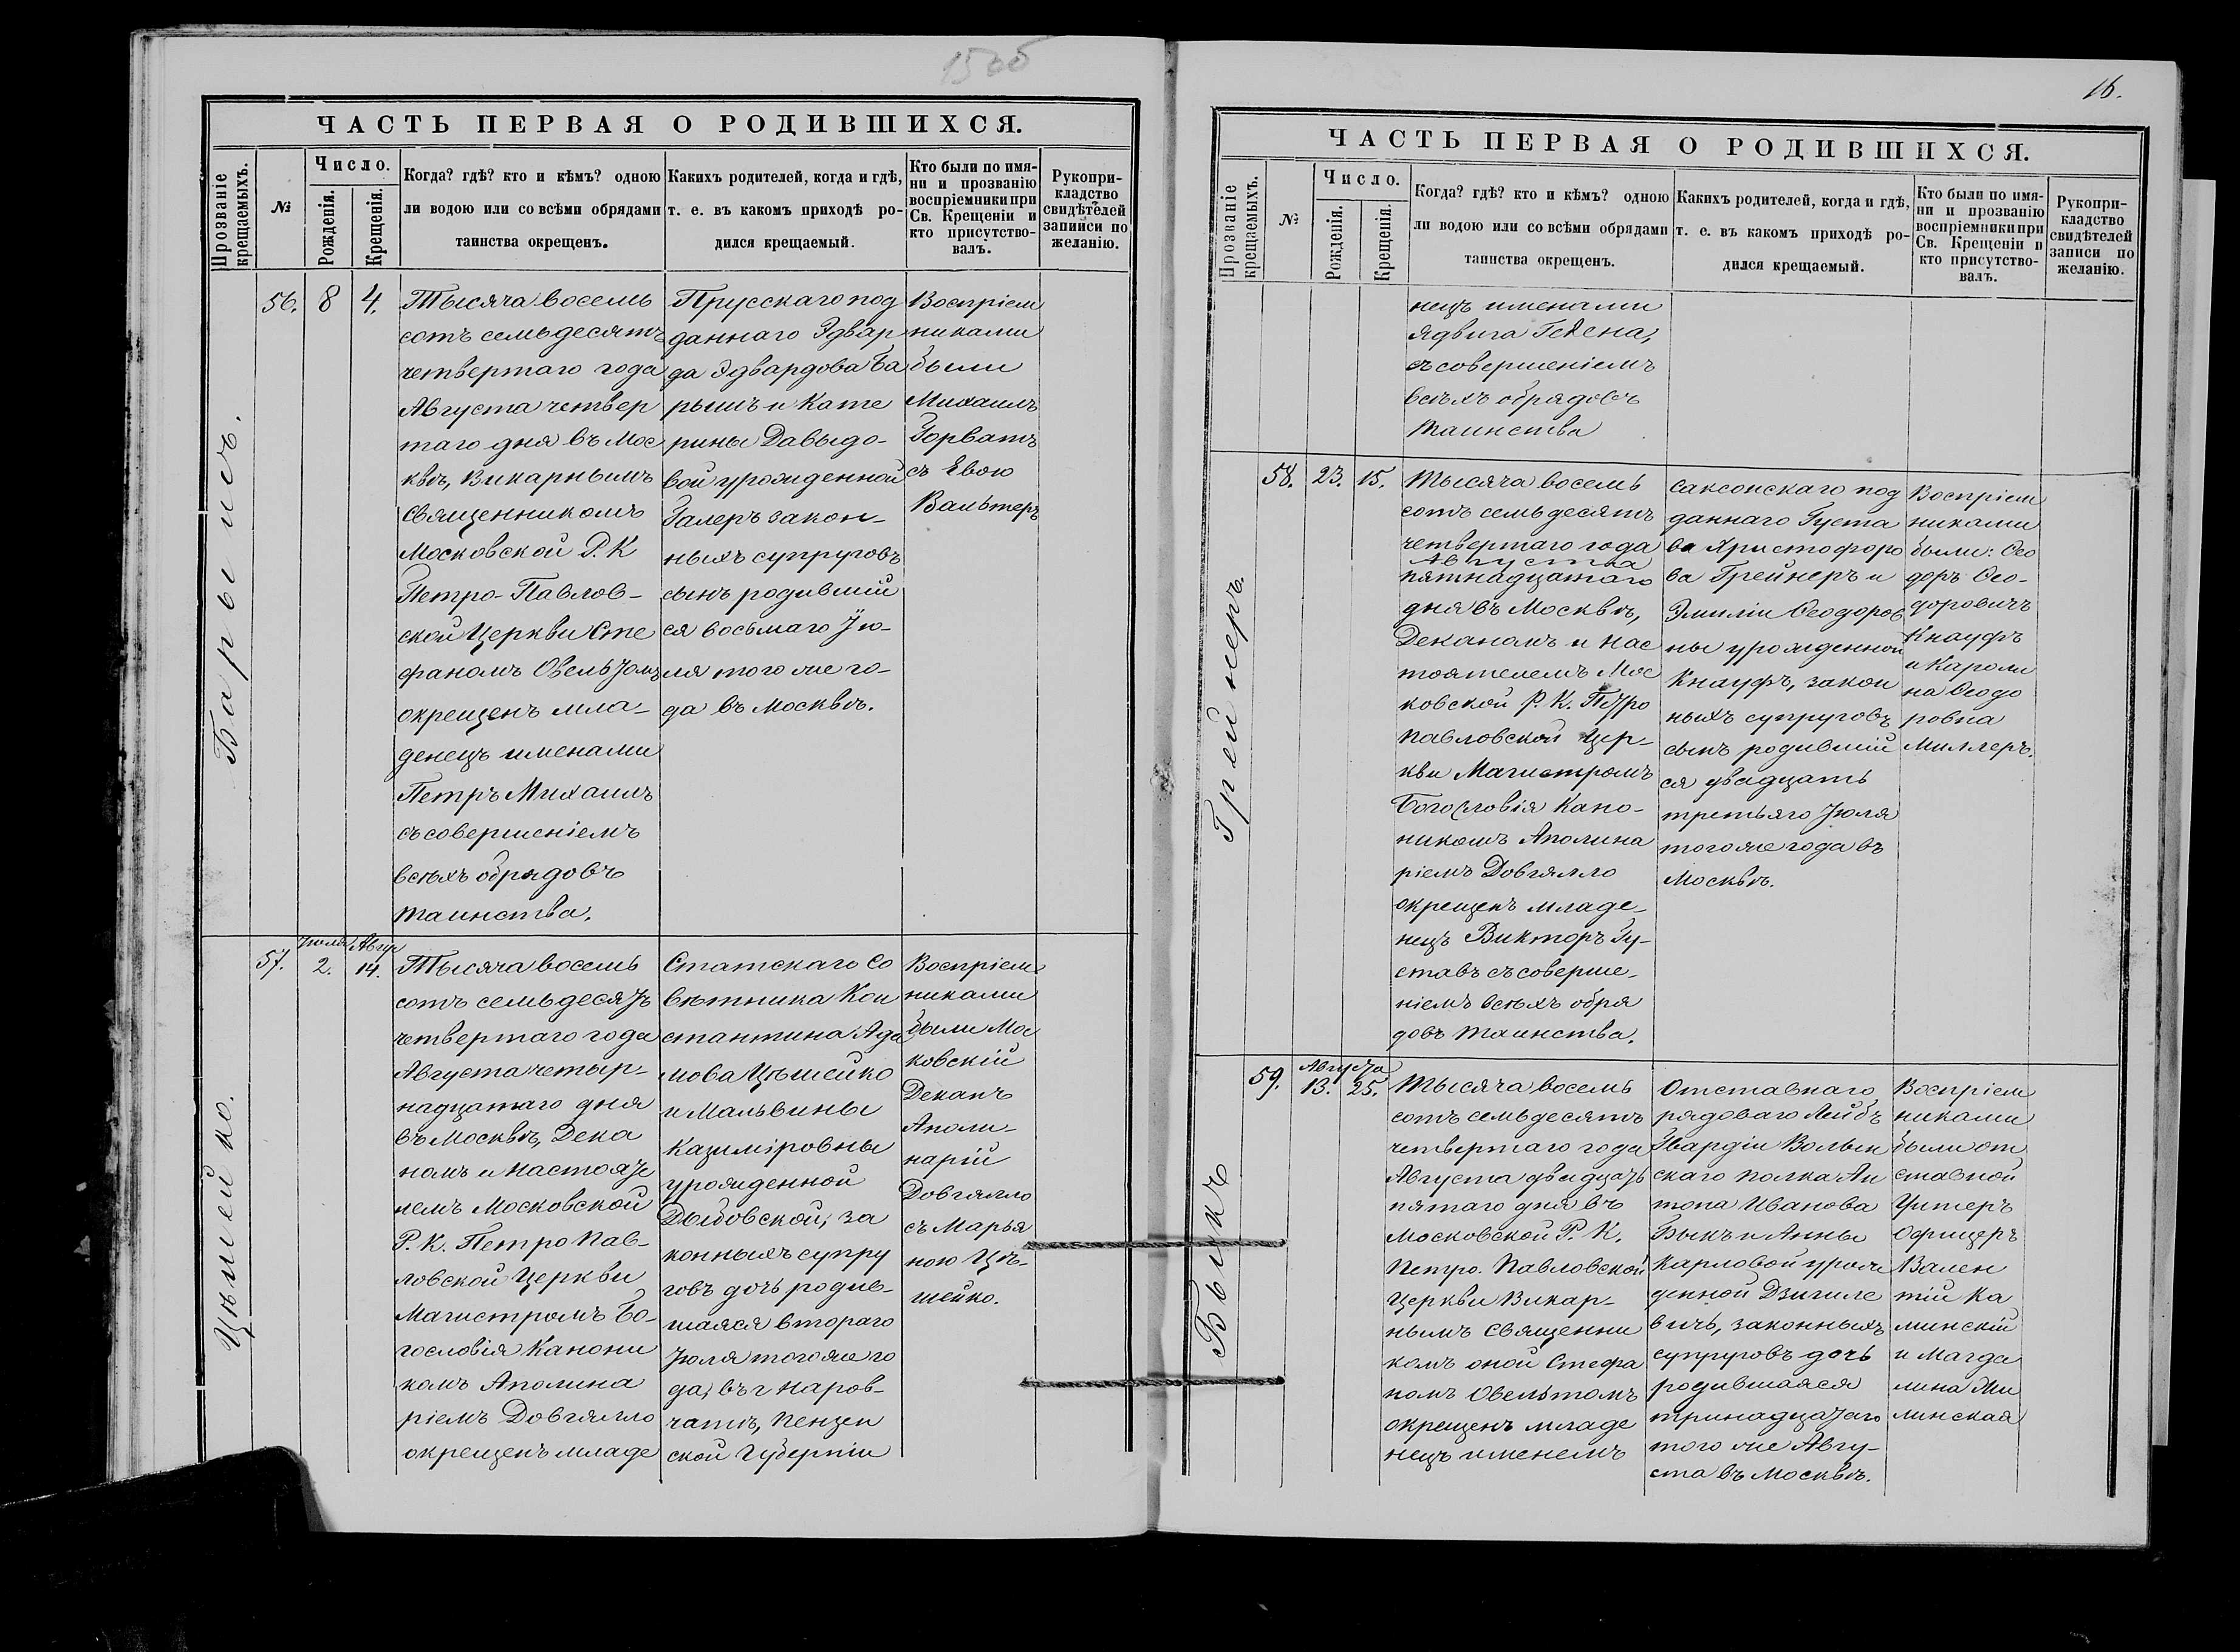 15об
ЧАСТЬ ПЕРВАЯ О РОДИВШИХСЯ.
Прозваніе крещаемыхъ.
№
Число.
Рожденія.
Крещенія.
Когда? гдѣ? кто и кѣмъ? одною
ли водою или со всѣми обрядами
таинства окрещенъ.
Какихъ родителей, когда и гдѣ,
т. е. въ какомъ приходѣ ро-
дился крещаемый.
Кто были по имя-
ни и прозванію
воспріемники при
Св. Крещеніи и
кто присутство-
валъ.
Рукопри-
кладство
свидѣтелей
записи по
желанію.
Барышъ.
56.
8
4.
Тысяча восемь
сотъ семьдесятъ
четвертаго года
Августа четвер
таго дня въ Мос
квѣ, Викарнымъ
Священникомъ
Московской Р. К
Петро-Павлов-
ской Церкви Сте
фаномъ Овельтомъ
окрещенъ мла-
денецъ именами
Петръ Михаилъ
съ совершеніемъ
всѣхъ обрядовъ
таинства.
Прусскаго под
даннаго Эдвар
да Эдвардова Ба
рышъ и Кате
рины Давыдо-
вой урожденной
Галеръ закон-
ныхъ супруговъ
сынъ родившій
ся восьмаго Ію-
ля того же го-
да въ Москвѣ.
Воспріем
никами
были
Михаилъ
Горватъ
съ Евою
Вальтеръ
Цѣшейко.
57.
Іюля
2.
Авгу
14.
Тысяча восемь
сотъ семьдесятъ
четвертаго года
Августа четыр-
надцатаго дня
въ Москвѣ, Дека
номъ и Настояте
лемъ Московской
Р. К. Петро Пав-
ловской Церкви
Магистромъ Бо-
гословія Канони
комъ Аполина
ріемъ Довгялло
окрещенъ младе
Статскаго Со
вѣтника Кон
стантина Ада
мова Цѣшейко
и Мальвины
Казиміровны
урожденной
Дыбовской, за
конныхъ супру
говъ дочь родив-
шаяся втораго
Іюля того же го
да, въ г Наров-
чатѣ, Пензен
ской Губерніи
Воспріем
никами
были Мос
ковскій
Деканъ
Аполи-
нарій
Довгялло
съ Марья
ною Цѣ-
шейко.
16.
ЧАСТЬ ПЕРВАЯ О РОДИВШИХСЯ.
Прозваніе крещаемыхъ.
№
Число.
Рожденія.
Крещенія.
Когда? гдѣ? кто и кѣмъ? одною
ли водою или со всѣми обрядами
таинства окрещенъ.
Какихъ родителей, когда и гдѣ,
т. е. въ какомъ приходѣ ро-
дился крещаемый.
Кто были по имя-
ни и прозванію
воспріемники при
Св. Крещеніи и
кто присутство-
валъ.
Рукопри-
кладство
свидѣтелей
записи по
желанію.
нецъ именами
Ядвига Гелена,
съ совершеніемъ
всѣхъ обрядовъ
таинства
Грейнеръ.
58.
23.
15.
Тысяча восемь
сотъ семьдесятъ
четвертаго года
Августа
пятнадцатаго
дня въ Москвѣ,
Деканомъ и Нас
тоятелемъ Мос
ковской Р. К. Петро
Павловской Цер-
кви Магистромъ
Богословія Кано-
никомъ Аполина
ріемъ Довгялло
окрещенъ младе-
нецъ Викторъ Гу-
ставъ съ соверше-
ніемъ всѣхъ обря
довъ таинства.
Саксонскаго под
даннаго Густа
ва Христофоро
ва Грейнеръ и
Эмиліи Ѳеодоров
ны урожденной
Кнауфъ, закон
ныхъ супруговъ
сынъ родившій
ся двадцать
третьяго Іюля
того же года въ
Москвѣ.
Воспріем
никами
были: Ѳео
доръ Ѳео-
доровичъ
Кнауфъ
и Кароли
на Ѳеодо
ровна
Миллеръ.
Быкъ
59.
Августа
13.
25.
Тысяча восемь
сотъ семьдесятъ
четвертаго года
Августа двадцать
пятаго дня въ
Московской Р. К.
Петро-Павловской
Церкви Викар-
нымъ Священни
комъ оной Стефа
номъ Овельтомъ
окрещенъ младе
нецъ именемъ
Отставнаго
рядоваго Лейбъ
Гвардіи Волын
скаго полка Ан
тона Иванова
Быкъ и Анны
Карловой урож
денной Дзигиле
вичъ, законныхъ
супруговъ дочь
родившаяся
тринадцатаго
того же Авгу-
ста въ Москвѣ.
Воспріем
никами
были от
ставной
Унтеръ
Офицеръ
Вален
тій Ка
минскій
и Магда
лина Ми
линская